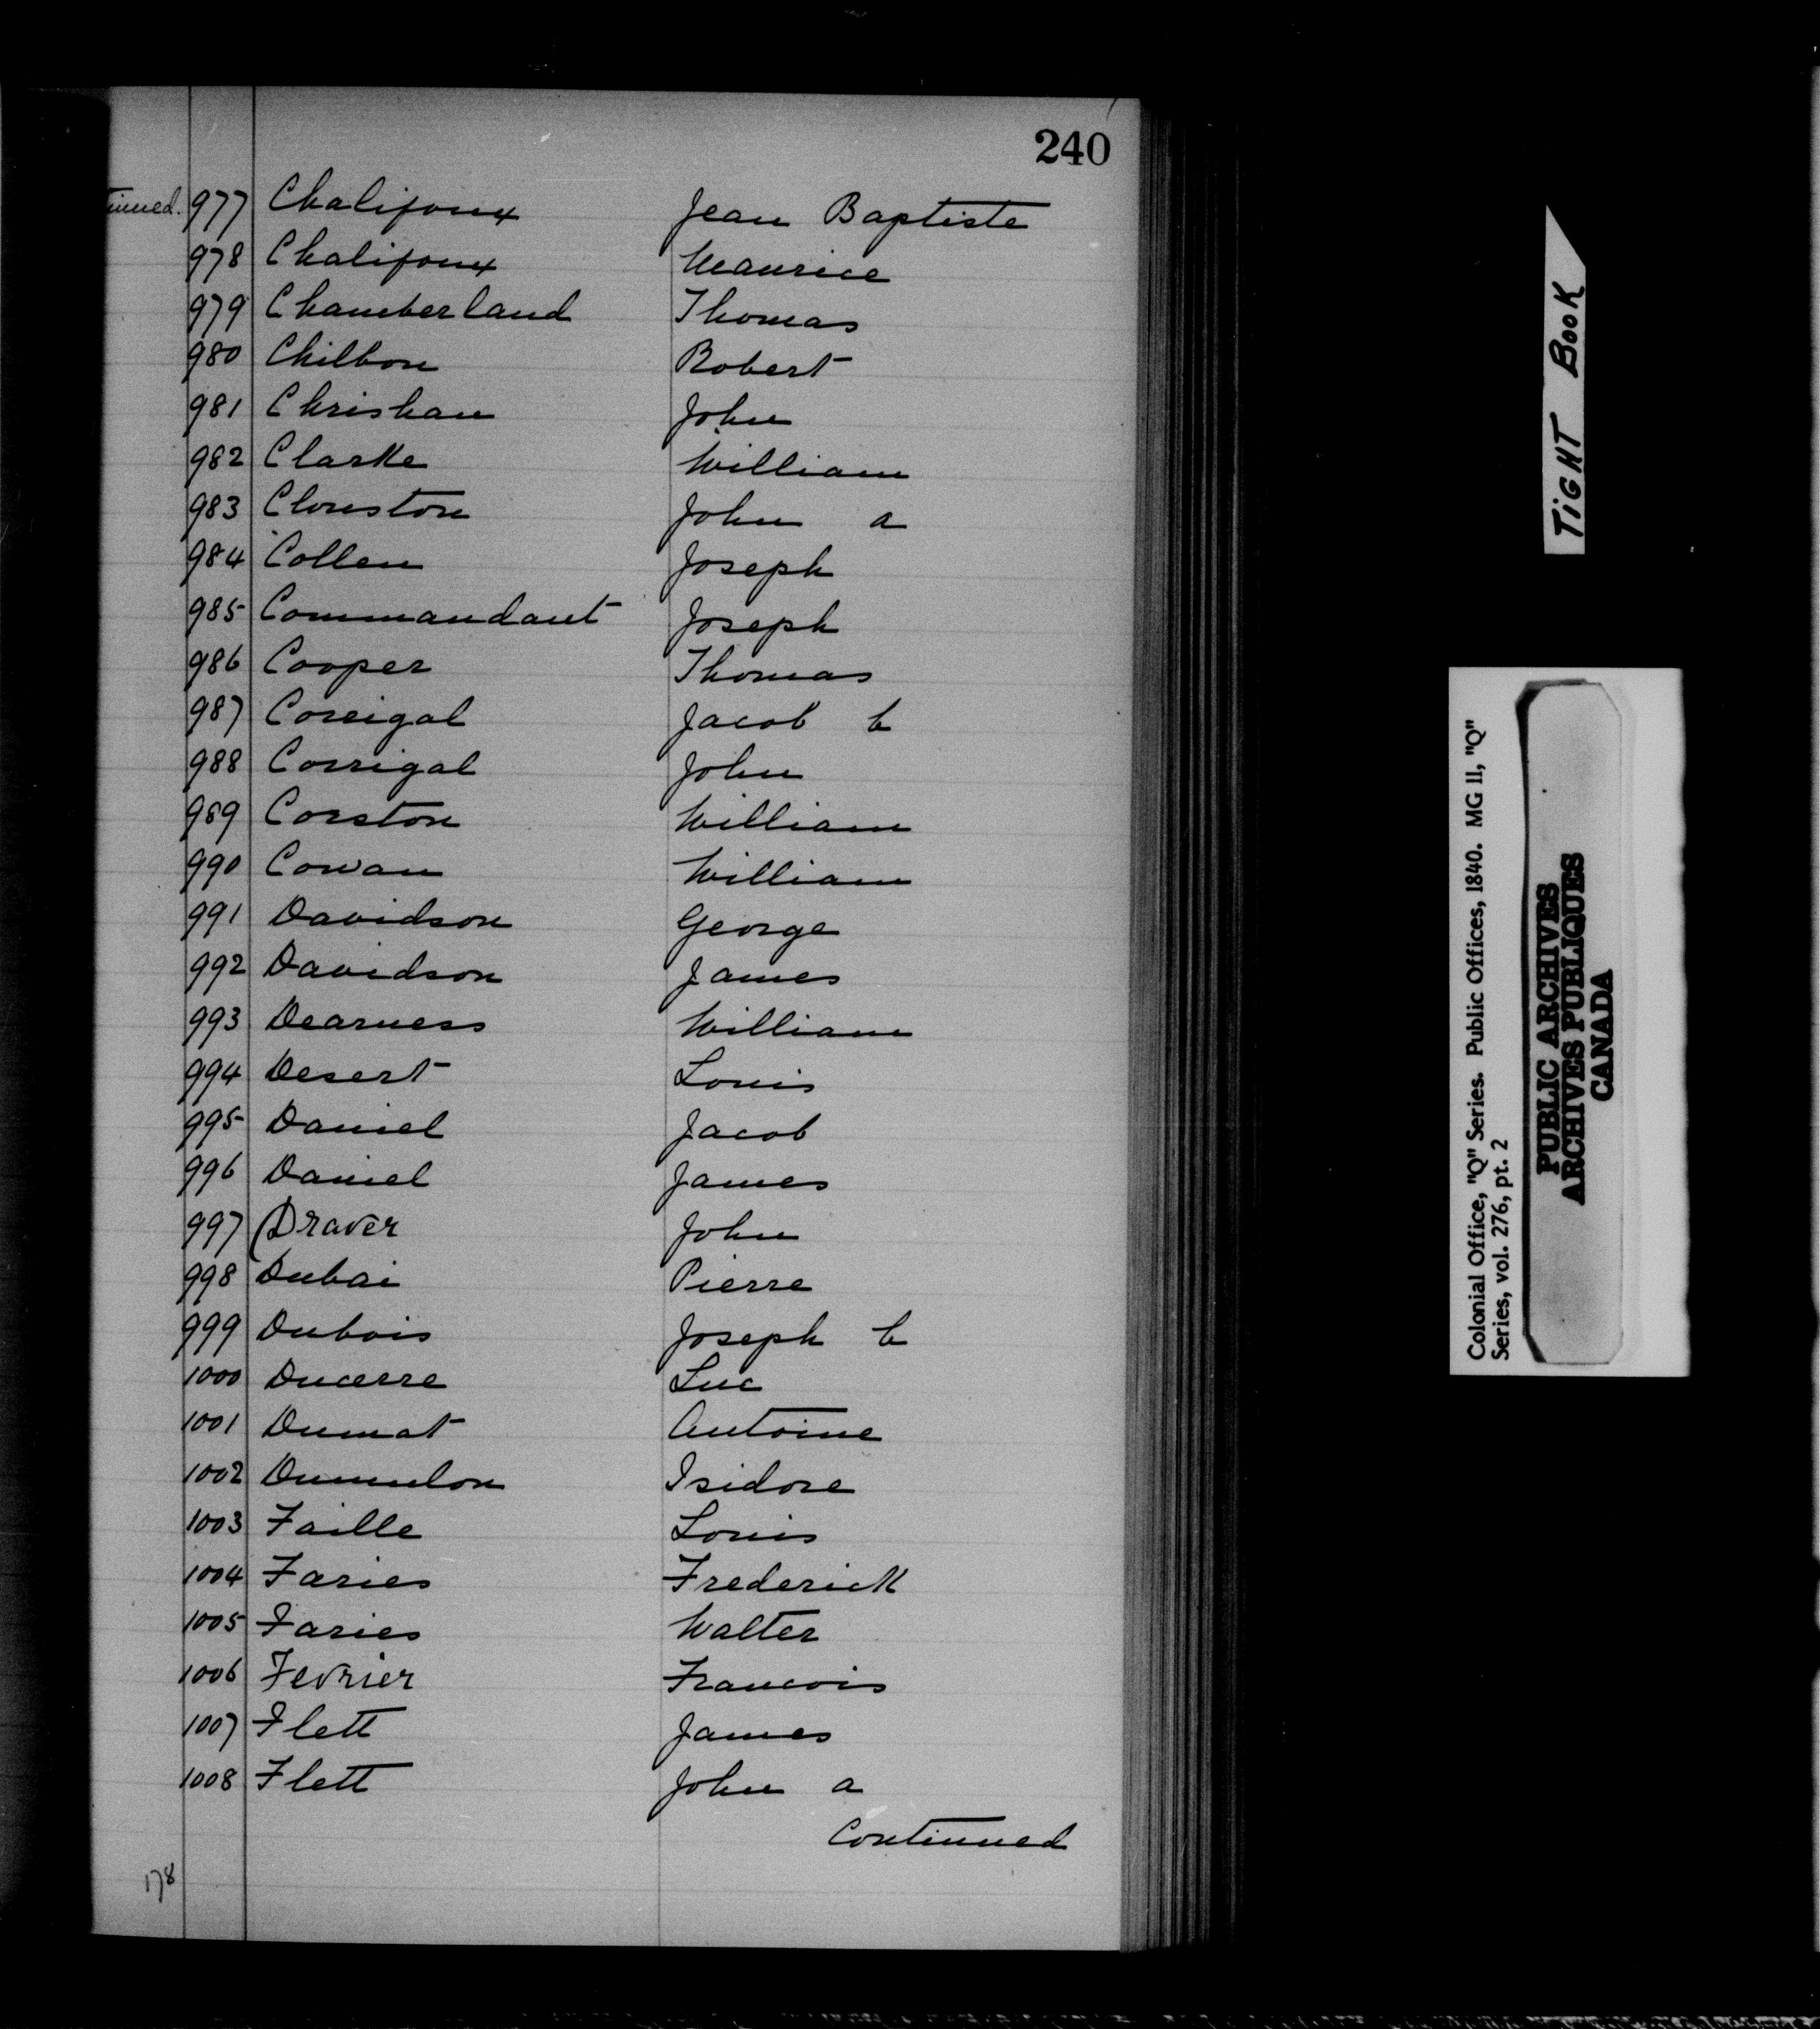 240
tinued. 977 Chalifoux Jean Baptiste
978 Chalifoux Maurice
979 Chamberland Thomas
980 Chilbon Robert
981 Christian John
982 Clarke William
983 Clouston John a
984 Collen Joseph
985 Commandant Joseph
986 Cooper Thomas
987 Coreigal Jacob b
988 Corrigal John
989 Corston William
990 Cowan William
991 Davidson George
992 Davidson James
993 Dearness William
994 Desert Louis
995 Daniel Jacob
996 Daniel James
997 Draver John
998 Dubai Pierre
999 Dubois Joseph b
1000 Ducerre Luc
1001 Dumat Antoine
1002 Dumulon Isidore
1003 Faille Louis
1004 Faries Frederick
1005 Faries Walter
1006 Fevrier Francois
1007 Flett James
1008 Flett John a
Continued
178
TiGHT BooK
Colonial Office, "Q" Series. Public Offices, 1840. MG II, "Q"
Series, vol. 276, pt. 2
PUBLIC ARCHIVES
ARCHIVES PUBLIQUES
CANADA